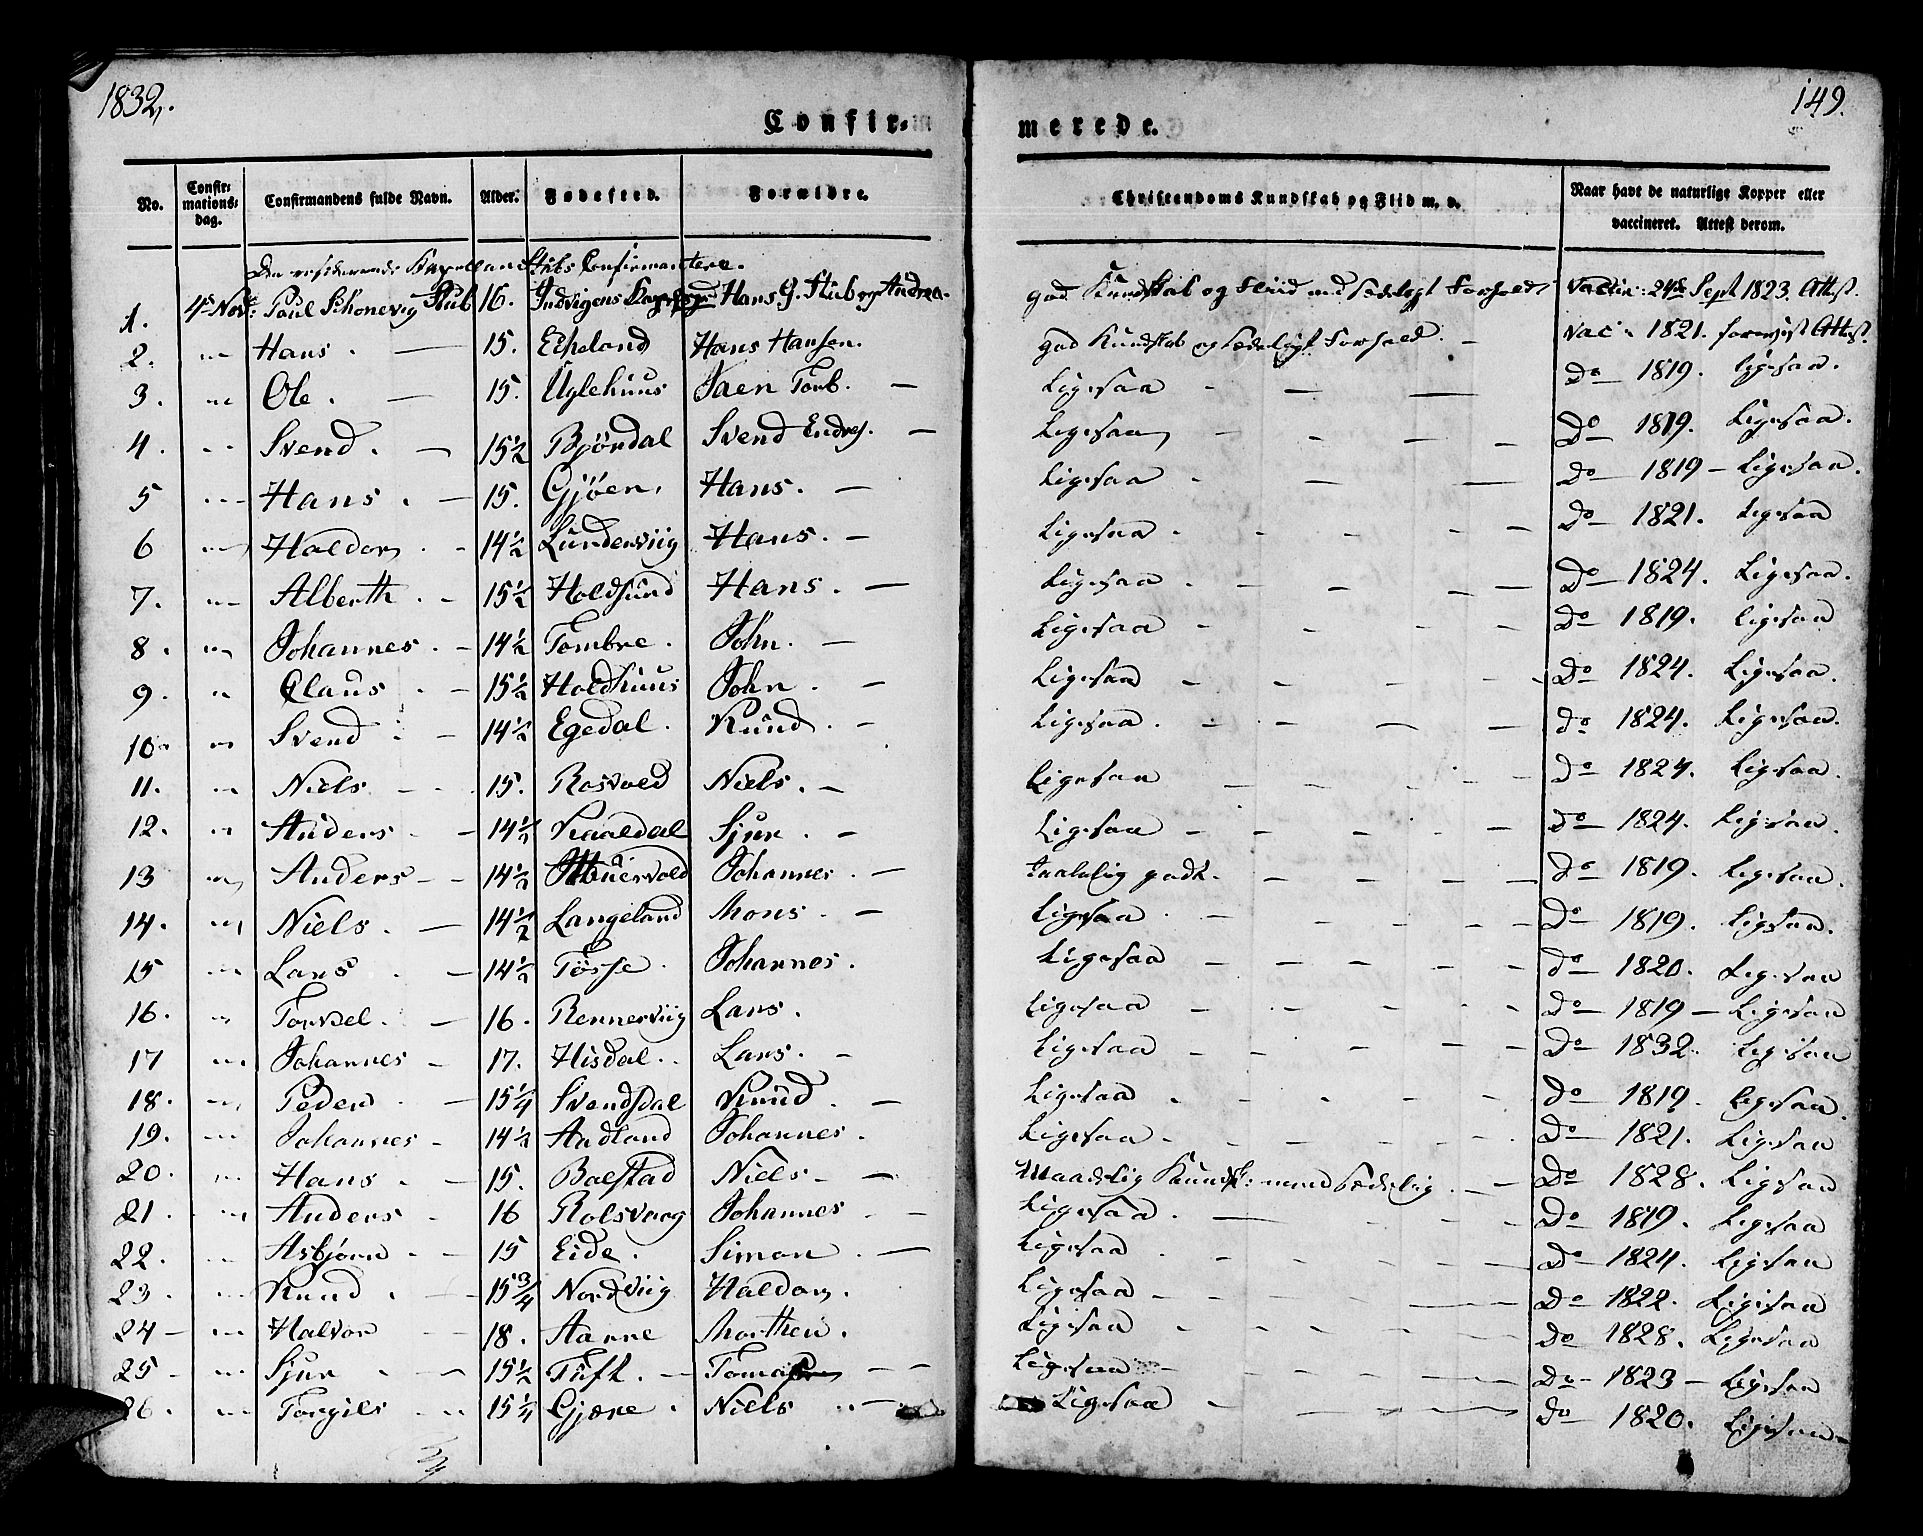 1832,
149.
Confir=
merede.
No.
Confir=
mations=
dag.
Confirmandens fulde Navn.
Alder.
Fødested.
Forældre.
Christendoms Kundskab og Flid m. v.
Naar havt de naturlige Kopper eller
vaccineret. Attest derom.
Den residerende Kapellan Stubs Confirmantere.
1. 4de Nov: Paul Schonevig Stub 16. Hans G. Stub og Andrea. god Kundskab og Fliid med sædeligt Forhold Vaccin: 24de Sept 1823. Attst.
2. " Hans. — 15. Eikeland Hans Hansen. god Kundskab og sædeligt Forhold. — vac: 1821. foreviist Attst.
3. " Ole. — 15. Uglehuus — Ligesaa — — — Do — 1819. ligesaa.
4. " Svend. — 15½ Bjørdal Svend Endres. — Ligesaa — — — Do — 1819. Ligesaa.
5 " Hans. — 15. Gjøen. Hans. — Ligesaa — — — Do — 1819 — Ligesaa.
6 " Haldor. — 14½ Lunderviig Hans. — Ligesaa — — — Do — 1821. Ligesaa
7. " Alberth. — 15½ Holdsund Hans. — Ligesaa — — — Do — 1824. Ligesaa.
8. " Johannes. — 14½ Tombre. John. — Ligesaa — — — Do — 1819. ligesaa
9. " Claus. — 15½ Holdhuus John. — Ligesaa — — — Do — 1824. Ligesaa.
10. " Svend — 14½ Egedal. Knud. — Ligesaa. — — — Do — 1824. Ligesaa.
11. " Niels — 15. Rosvold Niels. — Ligesaa — — — Do — 1824. Ligesaa.
12. " Anders — 14½ Kaaldal Sjur. — Ligesaa — — — Do — 1824. Ligesaa.
13 " Anders — 14½ Johannes. — taalelig godt. — — — Do — 1819. Ligesaa.
14. " Niels. — 14½ Langeland Mons. — Ligesaa. — — — Do — 1819. Ligesaa.
15 " Lars. — 14½ Tøsse. Johannes. Ligesaa — — — Do — 1820. Ligesaa
16. " Torkel. — 16. Rennerviig Lars. Ligesaa — — — Do — 1819 — Ligesaa
17 " Johannes — 17. Hisdal. Lars. — Ligesaa — — — Do — 1832. Ligesaa
18. " Peder. — 15¼ Svendsdal Knud. — Ligesaa — — — Do — 1819. Ligesaa.
19. " Johannes — 14½ Aadland Johannes. Ligesaa. — — — Do — 1821. Ligesaa
20. " Hans. — 15. Bolstad Niels. — Maadelig Kundsk: men sædelig. — — Do — 1828. Ligesaa
21. " Anders — 16 Rolsvaag Johannes — Ligesaa. — — — Do — 1819. Ligesaa
22. " Asbjørn — 15 Eide. Simon. — Ligesaa. — — — Do — 1824. Ligesaa
23. " Knud. — 15¾ Nordviig Haldor. Ligesaa — — — Do — 1822. Ligesaa
24 — " Halvor — 18. Aarre Morthen. Ligesaa — — — Do — 1828. Ligesaa
25 — " Sjur — 15½ Tuft. — Ligesaa — — — Do — 1823 — Ligesaa
26. " Torgils — 15¼ Gjære. Niels — Ligesaa — — — Do — 1820. Ligesaa